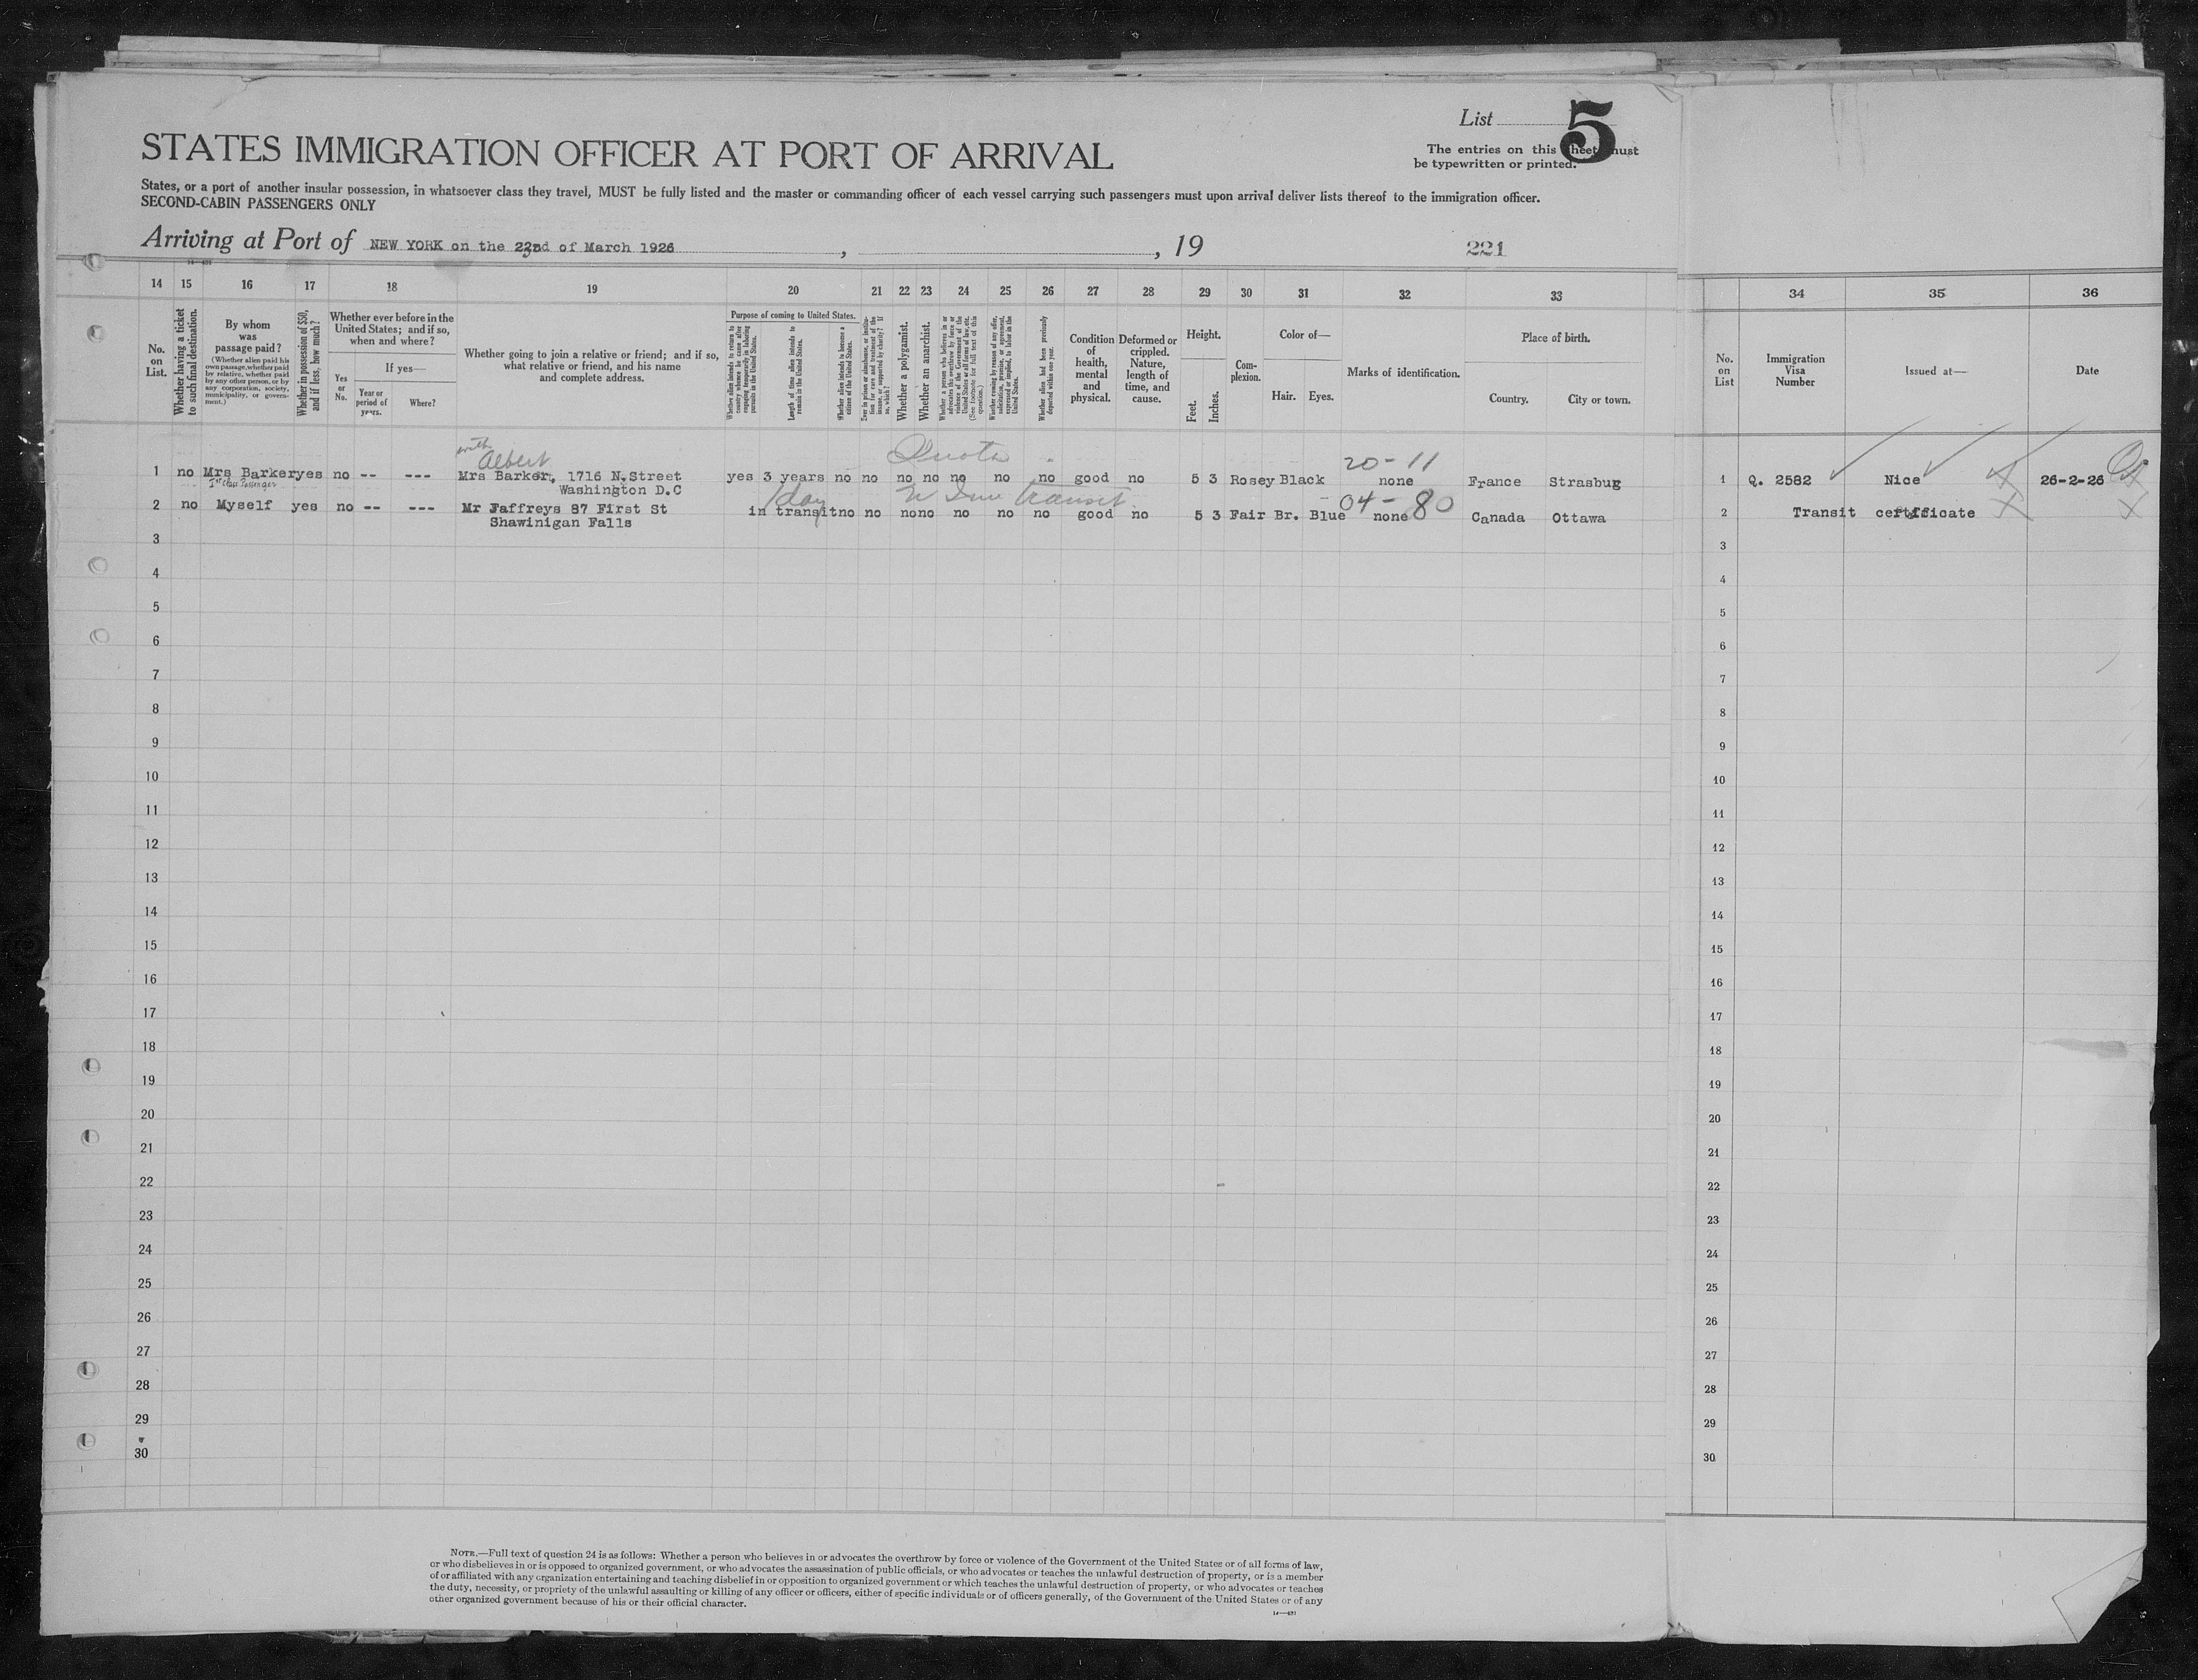 List 5
STATES IMMIGRATION OFFICER AT PORT OF ARRIVAL
The entries on this sheet must
be typewritten or printed.
States, or a port of another insular possession, in whatsoever class they travel, MUST be fully listed and the master or commanding officer of each vessel carrying such passengers must upon arrival deliver lists thereof to the immigration officer.
SECOND-CABIN PASSENGERS ONLY
Arriving at Port of NEW YORK on the 22nd of March 1926 , , 19 221
14 15 16 17 18 19 20 21 22 23 24 25 26 27 28 29 30 31 32 33 34 35 36
No. on List.
Whether having a ticket to such final destination.
By whom was passage paid?
(Whether alien paid his own passage, whether paid by relative, whether paid by any other person, or by any corporation, society, municipality, or government.)
Whether in possession of $50, and if less, how much?
Whether ever before in the United States; and if so, when and where?
Yes or No.
If yes—
Year or period of years.
Where?
Whether going to join a relative or friend; and if so, what relative or friend, and his name and complete address.
Purpose of coming to United States.
Whether alien intends to return to country whence he came after engaging temporarily in laboring pursuits in the United States.
Length of time alien intends to remain in the United States.
Whether alien intends to become a citizen of the United States.
Ever in prison or almshouse, or institution for care and treatment of the insane, or supported by charity? If so, which?
Whether a polygamist.
Whether an anarchist.
Whether a person who believes in or advocates the overthrow by force or violence of the Government of the United States or all forms of law, etc. (See footnote for full text of this question.)
Whether coming by reason of any offer, solicitation, promise, or agreement, expressed or implied, to labor in the United States.
Whether alien had been previously deported within one year.
Condition of health, mental and physical.
Deformed or crippled. Nature, length of time, and cause.
Height.
Feet. Inches.
Complexion.
Color of—
Hair. Eyes.
Marks of identification.
Place of birth.
Country. City or town.
No. on List
Immigration Visa Number
Issued at—
Date
with
Albert Quota 20-11
1 no Mrs Barker yes no -- --- Mrs Barker, 1716 N.Street yes 3 years no no no no no no no good no 5 3 Rosey Black none France Strasbug 1 Q. 2582 Nice 26-2-26
1st class Passenger Washington D.C
1 day transit 04-80
2 no Myself yes no -- --- Mr Faffreys 87 First St in transit no no no no no no no good no 5 3 Fair Br. Blue none Canada Ottawa 2 Transit certificate
Shawinigan Falls
3 3
4 4
5 5
6 6
7 7
8 8
9 9
10 10
11 11
12 12
13 13
14 14
15 15
16 16
17 17
18 18
19 19
20 20
21 21
22 22
23 23
24 24
25 25
26 26
27 27
28 28
29 29
30 30
NOTE.—Full text of question 24 is as follows: Whether a person who believes in or advocates the overthrow by force or violence of the Government of the United States or of all forms of law,
or who disbelieves in or is opposed to organized government, or who advocates the assassination of public officials, or who advocates or teaches the unlawful destruction of property, or is a member
of or affiliated with any organization entertaining and teaching disbelief in or opposition to organized government or which teaches the unlawful destruction of property, or who advocates or teaches
the duty, necessity, or propriety of the unlawful assaulting or killing of any officer or officers, either of specific individuals or of officers generally, of the Government of the United States or of any
other organized government because of his or their official character.